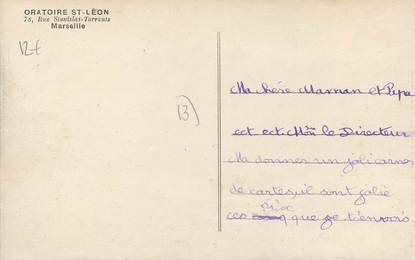 ORATOIRE ST-LÉON
78, Rue Stanislas-Torrents
Marseille
12€
13)
Ma chère Maman et Papa
est est. Mon le Directeur
Ma donner un joli carner
de cartes il sont jolie
prix
ces que je t'envois